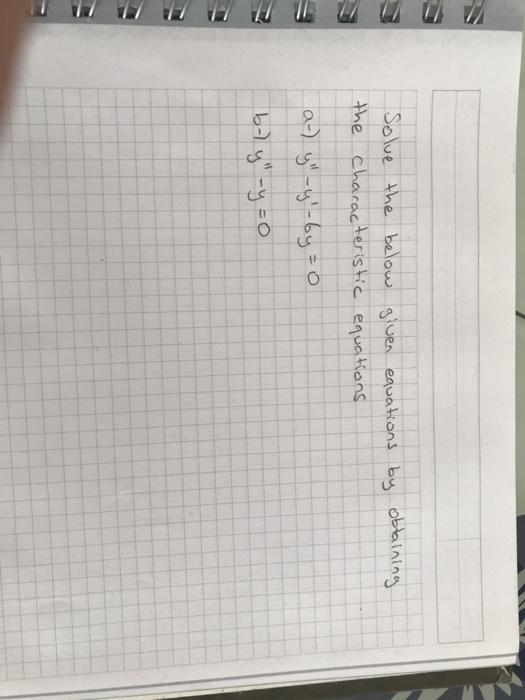 Solve the below given equations by obtaining
the characteristic equations
a-) y'' - y' - 6y = 0
b-) y'' - y = 0